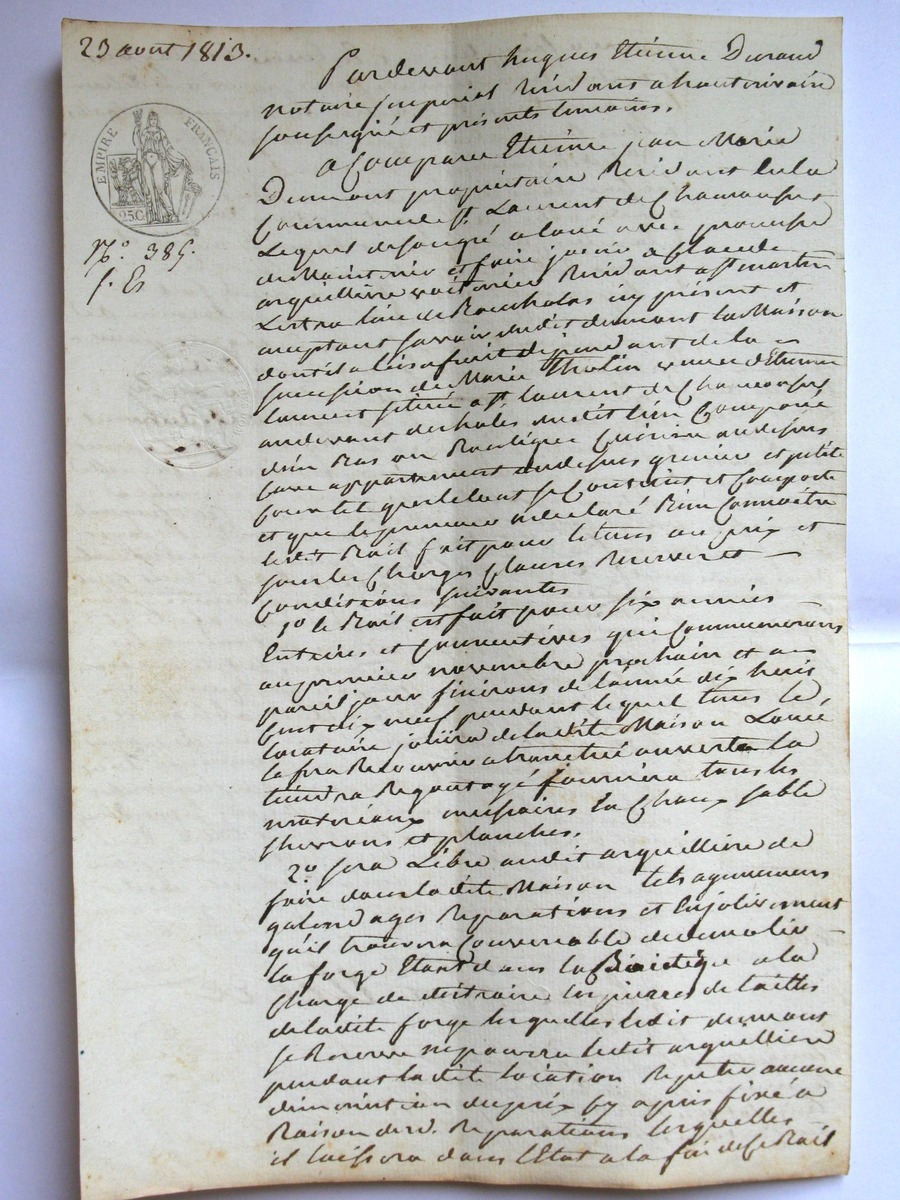 23 aout 1813.
EMPIRE FRANÇAIS
25 C.
N.º 385.
f. Es
Pardevant hugues Etienne Durand
notaire imperial Residant a hauterivoire
soussigné et présents temoins.
a Comparu Etienne jean Marie
Dumont propriétaire Residant en la
Commune de St. Laurent de Chamousset
Lequel de son gré a loué avec promesse
de Maintenir et faire jouir a Claude
arquillière voiturier Residant a St martin
Lestra lieu de Rocheholas icy présent et
acceptant savoir dudit dumont la Maison
dont il a l'usufruit dependant de la
succession de Marie Tholin veuve d'Etienne
laurent située a St laurent de Chamousset
au devant des hales dudit lieu Composée
d'un Bas ou Boutique Cuisine au dessus
cave appartement au dessus grenier et petite
Cour tel que le tout se Contient et Comporte
et que le preneur a declaré Bien Connoître
ledit Bail fait pour le tems au prix et
sous les Charges Clauses Reserves et
Conditions suivantes
1º le Bail est fait pour six années
Entières et Consecutives qui Commenceront
au premier novembre prochain et a
pareil jour finiront de l'année dix huit
Cent dix neuf pendant lequel tems le
locataire jouira de la dite Maison Loué
la fera Recouvrir a tranchée ouverte la
tiendra Regoutoyé fournira tous les
matériaux necessaires En Chaux sable
chevrons et planches.
2º sera Libre audit arquillière de
faire dans la dite Maison tels agencemens
galandages Reparations et Enjolivement
qu'il trouvera Convenable de demolir
la forge Etant dans la Boutique a la
Charge de distraire les pierres de tailles
de la dite forge lesquelles ledit dumont
se Reserve ne pourra ledit arquillière
pendant la dite location Repeter aucune
diminution du prix cy après fixé a
Raison desd. Reparations lesquelles
il laissera dans l'Etat a la fin de Ce Bail